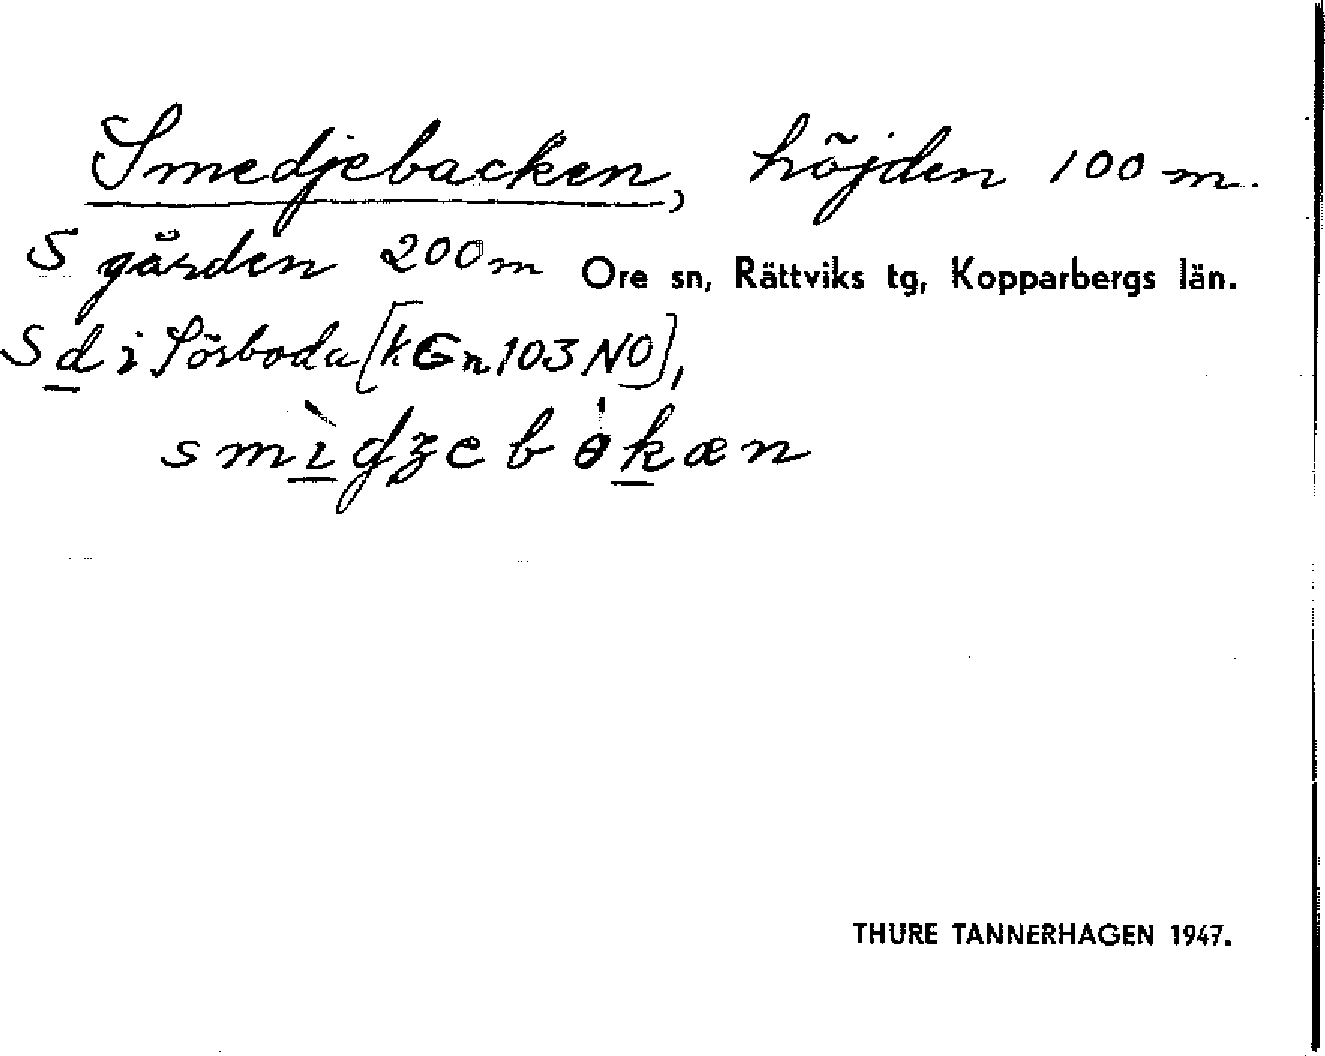 Smedjebacken, höjden 100 m.
S gården 200 m Ore sn, Rättviks tg, Kopparbergs län.
S d i Sörboda [kGn 103 NO],
THURE TANNERHAGEN 1947.